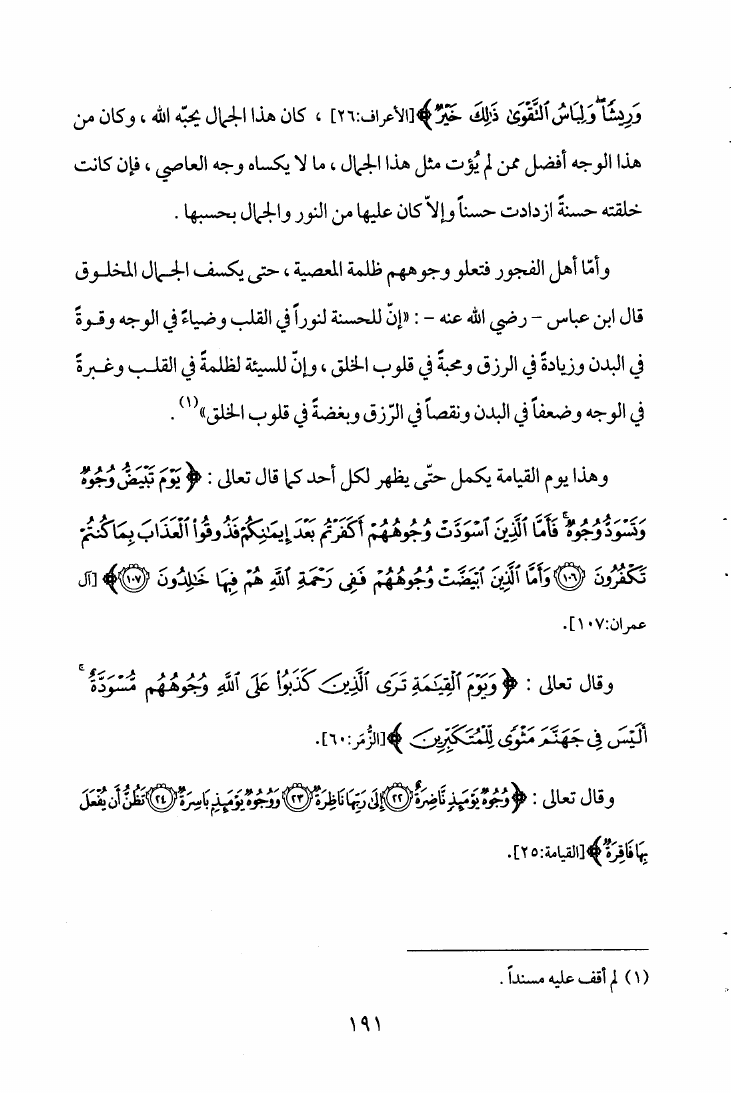 وَرِيشًا ۖ وَلِبَاسُ ٱلتَّقْوَىٰ ذَٰلِكَ خَيْرٌ ﴾ [الأعراف:٢٦] ، كان هذا الجمال يحبّه الله ، وكان من
هذا الوجه أفضل ممن لم يُؤت مثل هذا الجمال ، ما لا يكساه وجه العاصي ، فإن كانت
خلقته حسنةً ازدادت حسناً وإلاّ كان عليها من النور والجمال بحسبها .
وأمّا أهل الفجور فتعلو وجوههم ظلمة المعصية ، حتى يكسف الجمال المخلوق
قال ابن عباس – رضي الله عنه – : «إنّ للحسنة لنوراً في القلب وضياءً في الوجه وقوةً
في البدن وزيادةً في الرزق ومحبةً في قلوب الخلق ، وإنّ للسيئة لظلمةً في القلب وغبرةً
في الوجه وضعفاً في البدن ونقصاً في الرّزق وبغضةً في قلوب الخلق»(١) .
وهذا يوم القيامة يكمل حتّى يظهر لكل أحد كما قال تعالى : ﴿ يَوْمَ تَبْيَضُّ وُجُوهٌ
وَتَسْوَدُّ وُجُوهٌ ۚ فَأَمَّا ٱلَّذِينَ ٱسْوَدَّتْ وُجُوهُهُمْ أَكَفَرْتُم بَعْدَ إِيمَٰنِكُمْ فَذُوقُوا۟ ٱلْعَذَابَ بِمَا كُنتُمْ
تَكْفُرُونَ ١٠٦ وَأَمَّا ٱلَّذِينَ ٱبْيَضَّتْ وُجُوهُهُمْ فَفِى رَحْمَةِ ٱللَّهِ هُمْ فِيهَا خَٰلِدُونَ ١٠٧ ﴾ [آل
عمران:١٠٧].
وقال تعالى : ﴿ وَيَوْمَ ٱلْقِيَٰمَةِ تَرَى ٱلَّذِينَ كَذَبُوا۟ عَلَى ٱللَّهِ وُجُوهُهُم مُّسْوَدَّةٌ ۚ
أَلَيْسَ فِى جَهَنَّمَ مَثْوًى لِّلْمُتَكَبِّرِينَ ﴾ [الزُّمَر:٦٠].
وقال تعالى : ﴿ وُجُوهٌ يَوْمَئِذٍ نَّاضِرَةٌ ٢٢ إِلَىٰ رَبِّهَا نَاظِرَةٌ ٢٣ وَوُجُوهٌ يَوْمَئِذٍ بَاسِرَةٌ ٢٤ تَظُنُّ أَن يُفْعَلَ
بِهَا فَاقِرَةٌ ﴾ [القيامة:٢٥].
(١) لم أقف عليه مسنداً .
١٩١